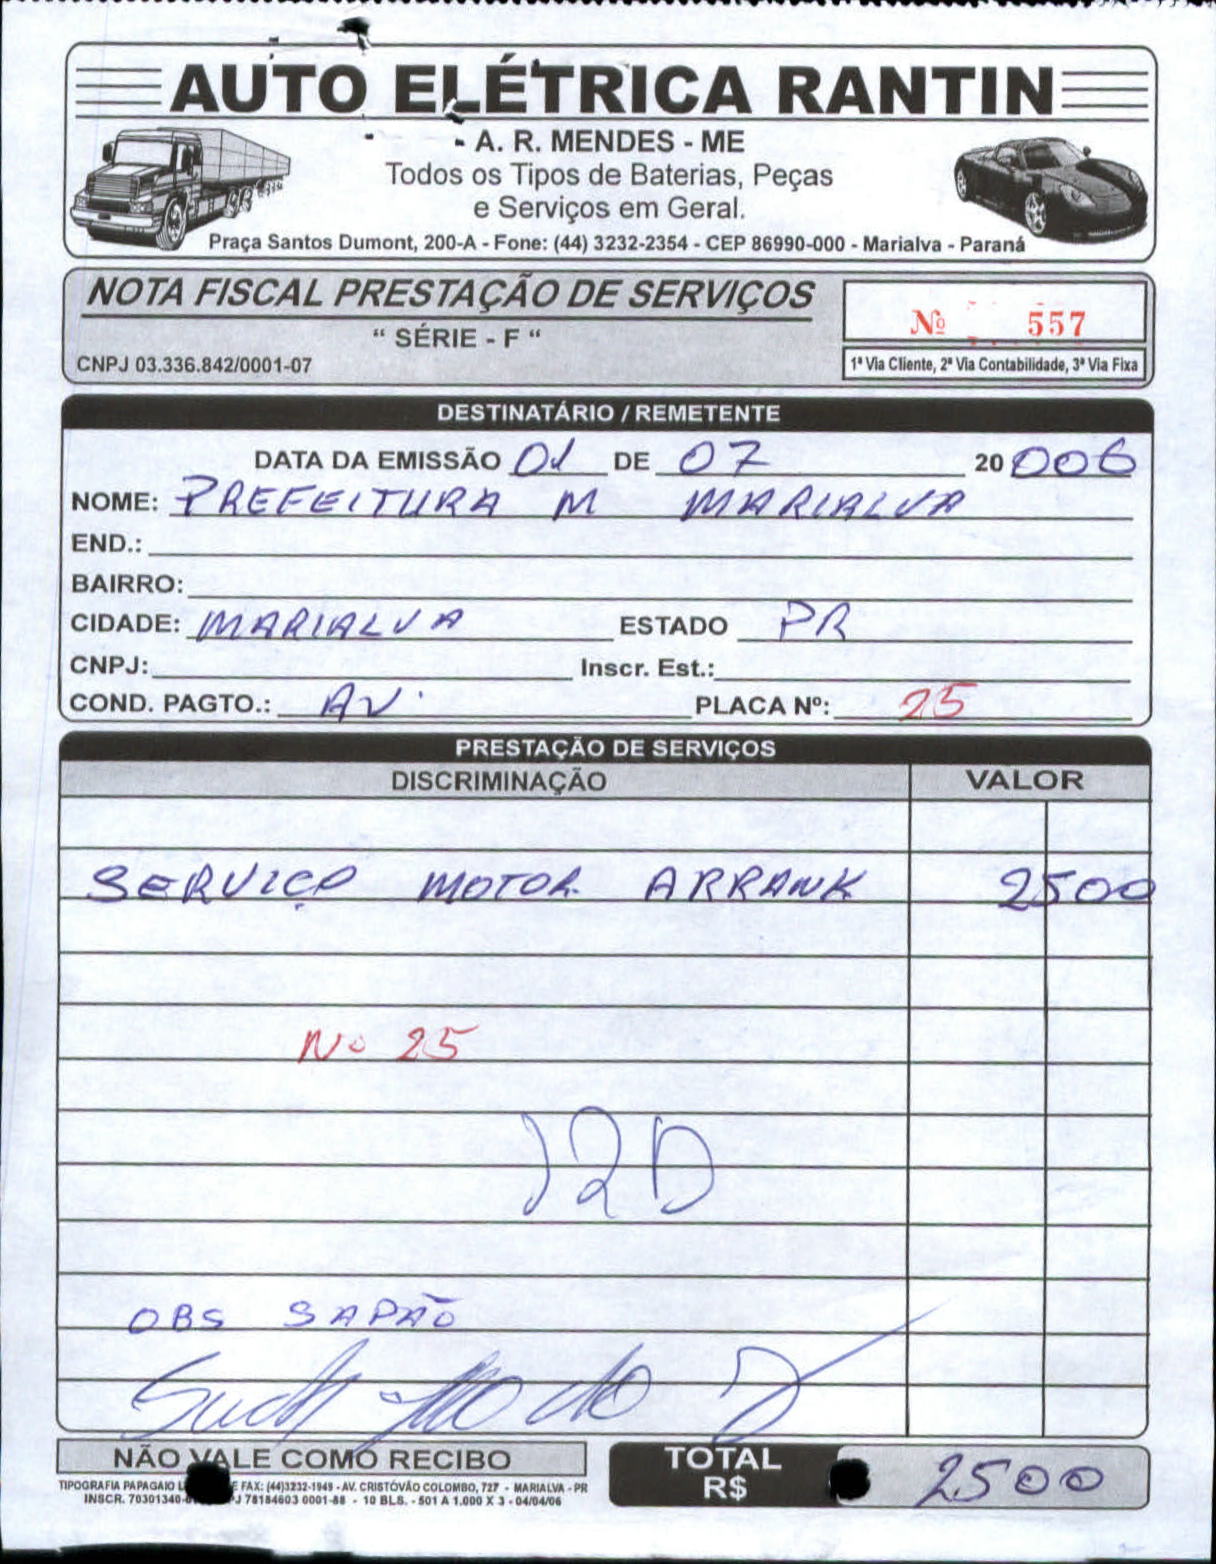 AUTO ELÉTRICA RANTIN
- A. R. MENDES - ME
Todos os Tipos de Baterias, Peças
e Serviços em Geral.
Praça Santos Dumont, 200-A - Fone: (44) 3232-2354 - CEP 86990-000 - Marialva - Paraná
NOTA FISCAL PRESTAÇÃO DE SERVIÇOS
“ SÉRIE - F “
Nº 557
CNPJ 03.336.842/0001-07
1ª Via Cliente, 2ª Via Contabilidade, 3ª Via Fixa
DESTINATÁRIO / REMETENTE
DATA DA EMISSÃO 01 DE 07 20 006
NOME: PREFEITURA M MARIALVA
END.:
BAIRRO:
CIDADE: MARIALVA ESTADO PR
CNPJ: Inscr. Est.:
COND. PAGTO.: AV. PLACA Nº: 25
PRESTAÇÃO DE SERVIÇOS
DISCRIMINAÇÃO VALOR
SERVIÇO MOTOR ARRANK 2500
Nº 25
OBS SAPÃO
NÃO VALE COMO RECIBO
TOTAL
R$ 2500
TIPOGRAFIA PAPAGAIO FAX: (44)3232-1949 - AV. CRISTÓVÃO COLOMBO, 727 - MARIALVA - PR
INSCR. 70301340- 78184603 0001-88 - 10 BLS. - 501 A 1.000 X 3 - 04/04/06